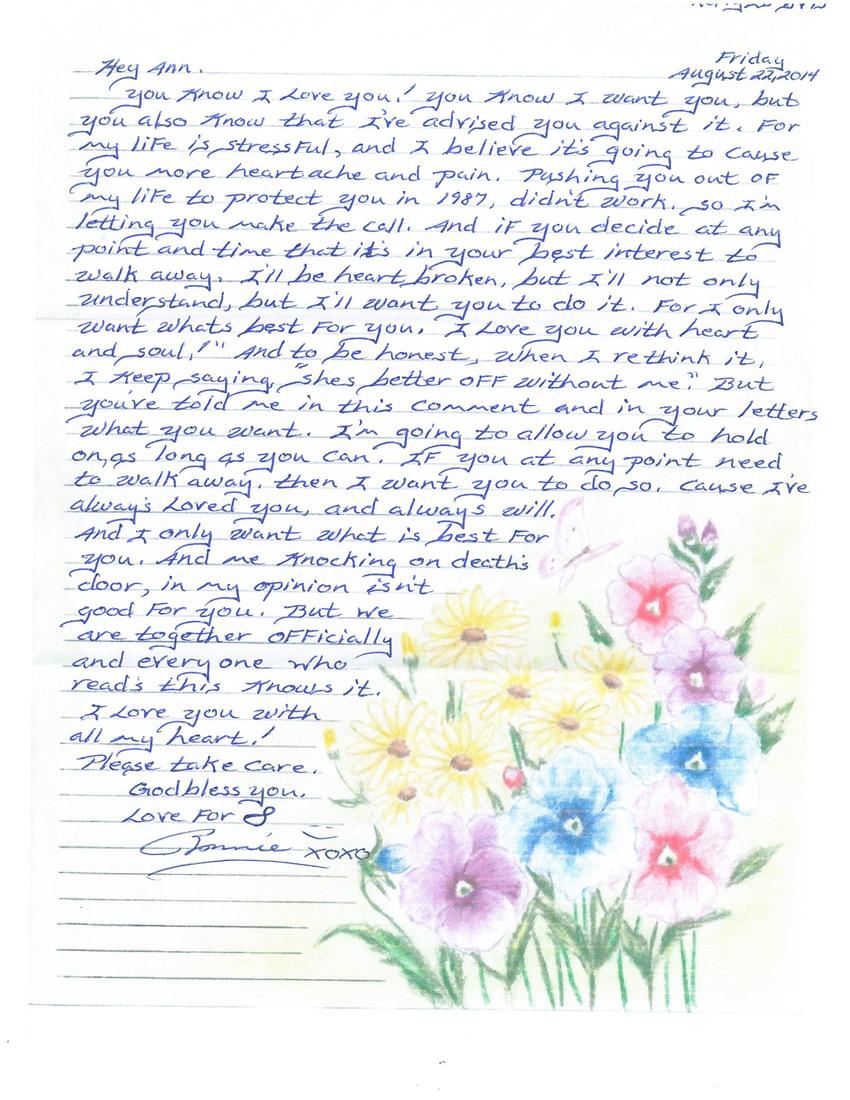 Friday
Hey Ann.
August 22, 2014
You know I love you! You know I want you, but
you also know that I've advised you against it. For
my life is stressful, and I believe it's going to cause
you more heartache and pain. Pushing you out of
my life to protect you in 1987, didn't work. so I'm
letting you make the call. And if you decide at any
point and time that it's in your best interest to
walk away. I'll be heart broken, but I'll not only
understand, but I'll want you to do it. For I only
want whats best for you. I love you with heart
and soul!" And to be honest, when I rethink it,
I keep saying, "shes better off without me." But
you've told me in this comment and in your letters
what you want. I'm going to allow you to hold
on, as long as you can. If you at any point need
to walk away. then I want you to do so. Cause I've
always loved you, and always will.
And I only want what is best for
you. And me knocking on death's
door, in my opinion isn't
good for you. But we
are together officially
and everyone who
read's this knows it.
I love you with
all my heart!
Please take care.
God bless you.
Love for 8
Ronnie xoxo